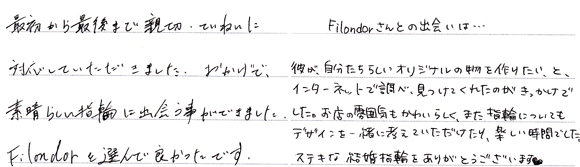 最初から最後まで親切、ていねいに
対応していただきました。おかげで、
素晴らしい指輪に出会う事ができました。
Filondorを選んで良かったです。
Filondorさんとの出会いは…
彼が、自分たちらしいオリジナルの物を作りたい、と、
インターネットで調べ、見つけてくれたのがき、かけで
した。お店の雰囲気もかわいらして、また指輪についても
デザインを一緒に考えていただけたり、楽しい時間でした。
ステキな結婚指輪をありがとうございます♥